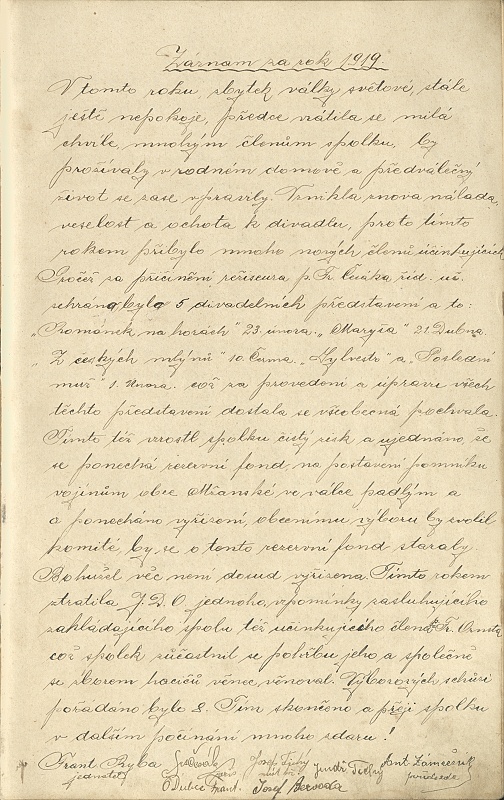 Záznam za rok 1919.
V tomto roku, zbytek války světové, stále
ještě nepokoje, předce vrátila se milá
chvíle, mnohým členům spolku, by
prožívaly v rodném domově a předválečný
život se zase vpravily. Vznikla znova nálada,
veselost a ochota k divadlu, proto tímto
rokem přibylo mnoho nových členů účinkujících.
Pročež za přičinění režiseura p. Fr. Čeáka říd. uč.
sehráno bylo 5 divadelních představení a to:
„Románek na horách" 23. února. „Maryša" 21. Dubna.
„Z českých mlýnů" 10. Června. „Sylvestr" a „Poslední
muž" 1. Února. což za provedení a úpravu všech
těchto představení dostala se všeobecná pochvala.
Tímto též vzrostl spolku čistý zisk a ujednáno, že
se ponechá rezervní fond, na postavení pomníku
vojínům obce Mžanské ve válce padlým a
a ponecháno vyřízení, obecnímu výboru by svolil
komité, by se o tento rezervní fond staraly.
Bohužel věc není dosud vyřízena. Tímto rokem
ztratila J. D. O. jednoho, vzpomínky zasluhujícího
zakládajícího spolu též účinkujícího člena Fr. Ornsta
což spolek zúčastnil se pohřbu jeho a společně
se sborem hasičů věnec věnoval. Výborových schůzí
pořádáno bylo 8. Tím skončeno a přeji spolku
v dalším počínání mnoho zdaru!
Frant. Ryba Josef Tichý Jindř. Tichý Ant. Zámečník
jednatel předseda.
Dubic Frant. Josef